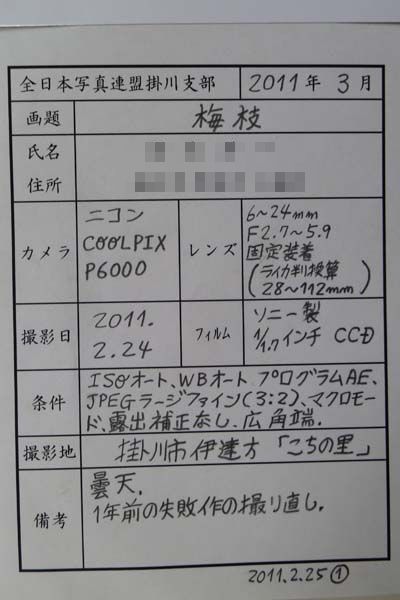 全日本写真連盟掛川支部 2011年 3月
画題 梅枝
氏名
住所
カメラ ニコン
COOLPIX
P6000
レンズ 6〜24mm
F2.7〜5.9
固定装着
(ライカ判換算
28〜112mm)
撮影日 2011.
2.24
フィルム ソニー製
1/1.7インチ CCD
条件 ISOオート、WBオート プログラムAE、
JPEGラージファイン(3:2)、マクロモー
ド、露出補正なし.広角端.
撮影地 掛川市伊達方「こちの里」
備考 曇天.
1年前の失敗作の撮り直し.
2011.2.25①